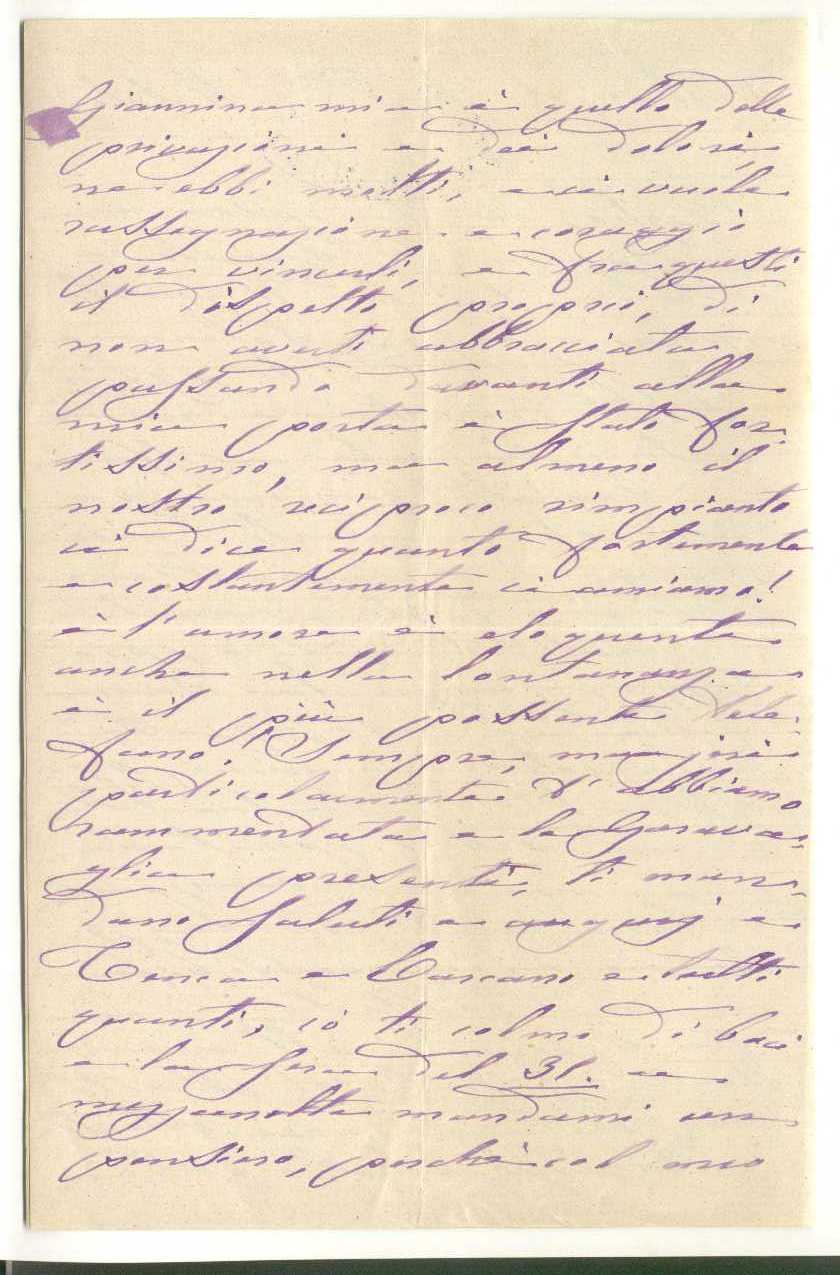 Giannina mia è quello delle
privazioni e dei dolori,
ne ebbi molti, e ci vuole
rassegnazione e coraggio
per vincerli, e fra questi
il dispetto proprio, di
non averti abbracciata
passando davanti alla
mia porta è stato for-
tissimo, ma almeno il
nostro reciproco rimpianto
ci dice quanto fortemente
e costantemente ci amiamo!
è l'amore è eloquente
anche nella lontananza
è il più possente tele-
fono. Sempre, ma jeri
particolarmente t'abbiamo
rammentata e la Garava-
glia presenti, ti man-
dano saluti e augurj e
Tenca e Carcano e tutti
quanti, io ti colmo di baci
e la sera del 31. a
mezzanotte mandami un
pensiero, perchè col mio